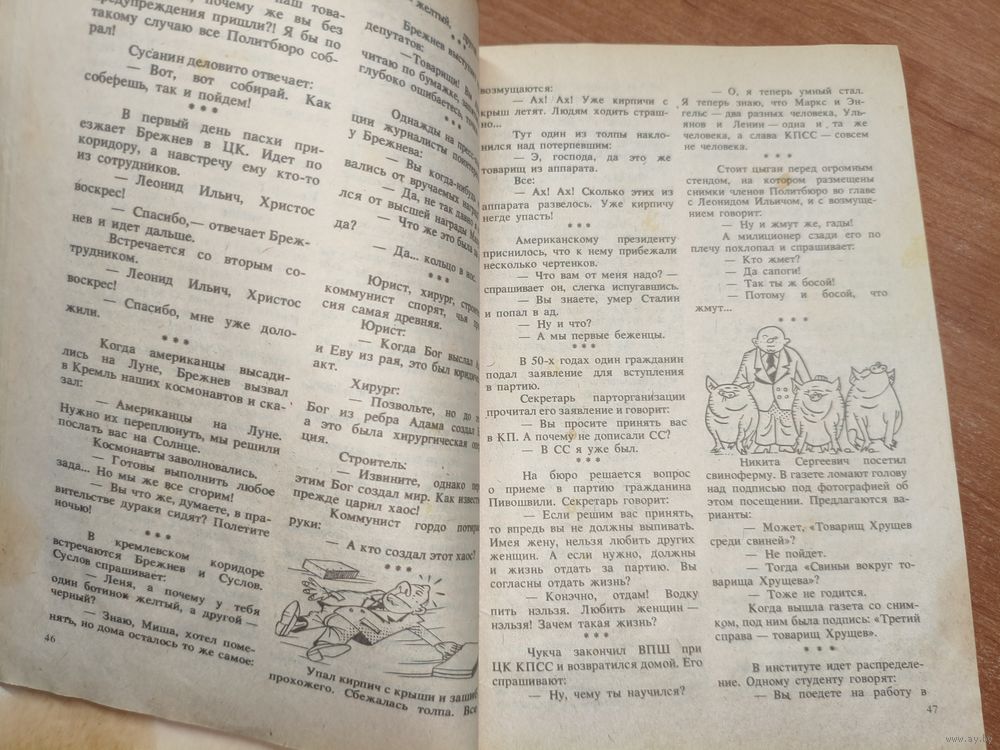 наш това-
почему же вы без
предупреждения пришли?! Я бы по
такому случаю все Политбюро соб-
рал!
Сусанин деловито отвечает:
— Вот, вот собирай. Как
соберешь, так и пойдем!
* * *
В первый день пасхи при-
езжает Брежнев в ЦК. Идет по
коридору, а навстречу ему кто-то
из сотрудников.
— Леонид Ильич, Христос
воскрес!
— Спасибо,— отвечает Бреж-
нев и идет дальше.
Встречается со вторым со-
трудником.
— Леонид Ильич, Христос
воскрес!
— Спасибо, мне уже доло-
жили.
* * *
Когда американцы высади-
лись на Луне, Брежнев вызвал
в Кремль наших космонавтов и ска-
зал:
— Американцы на Луне.
Нужно их переплюнуть, мы решили
послать вас на Солнце.
Космонавты заволновались.
— Готовы выполнить любое
зада... Но мы же все сгорим!
— Вы что же, думаете, в пра-
вительстве дураки сидят? Полетите
ночью!
* * *
В кремлевском коридоре
встречаются Брежнев и Суслов.
Суслов спрашивает:
— Леня, а почему у тебя
один ботинок желтый, а другой —
черный?
— Знаю, Миша, хотел поме-
нять, но дома осталось то же самое:
46
желтый,
* * *
Брежнев
депутатов:
— Товарищи!
читаю по бумажке,
глубоко ошибаетесь,
* * *
Однажды на
ции журналисты
у Брежнева:
— Вы когда-нибудь
вались от вручаемых
— Да, не так давно
лся от высшей награды
— Что же это была за
да?
— Да... кольцо в нос.
* * *
Юрист, хирург,
коммунист спорят, чья
сия самая древняя.
Юрист:
— Когда Бог выслал
и Еву из рая, это был
акт.
Хирург:
— Позвольте, но до
Бог из ребра Адама создал
а это была хирургическая
ция.
Строитель:
— Извините, однако
этим Бог создал мир. Как
прежде царил хаос!
Коммунист гордо
руки:
— А кто создал этот хаос!
Упал кирпич с крыши и
прохожего. Сбежалась толпа. Все
возмущаются:
— Ах! Ах! Уже кирпичи с
крыш летят. Людям ходить страш-
но...
Тут один из толпы накло-
нился над потерпевшим:
— Э, господа, да это же
товарищ из аппарата.
Все:
— Ах! Ах! Сколько этих из
аппарата развелось. Уже кирпичу
негде упасть!
* * *
Американскому президенту
приснилось, что к нему прибежали
несколько чертенков.
— Что вам от меня надо? —
спрашивает он, слегка испугавшись.
— Вы знаете, умер Сталин
и попал в ад.
— Ну и что?
— А мы первые беженцы.
* * *
В 50-х годах один гражданин
подал заявление для вступления
в партию.
Секретарь парторганизации
прочитал его заявление и говорит:
— Вы просите принять вас
в КП. А почему не дописали СС?
— В СС я уже был.
* * *
На бюро решается вопрос
о приеме в партию гражданина
Пивошвили. Секретарь говорит:
— Если решим вас принять,
то впредь вы не должны выпивать.
Имея жену, нельзя любить других
женщин. А если нужно, должны
и жизнь отдать за партию. Вы
согласны отдать жизнь?
— Конэчно, отдам! Водку
пить нэльзя. Любить женщин —
нэльзя! Зачем такая жизнь?
* * *
Чукча закончил ВПШ при
ЦК КПСС и возвратился домой. Его
спрашивают:
— Ну, чему ты научился?
— О, я теперь умный стал.
Я теперь знаю, что Маркс и Эн-
гельс — два разных человека, Улья-
нов и Ленин — одна и та же
человека, а слава КПСС — совсем
не человека.
* * *
Стоит цыган перед огромным
стендом, на котором размещены
снимки членов Политбюро во главе
с Леонидом Ильичем, и с возмуще-
нием говорит:
— Ну и жмут же, гады!
А милиционер сзади его по
плечу похлопал и спрашивает:
— Кто жмет?
— Да сапоги!
— Так ты ж босой!
— Потому и босой, что
жмут...
* * *
Никита Сергеевич посетил
свиноферму. В газете ломают голову
над подписью под фотографией об
этом посещении. Предлагаются ва-
рианты:
— Может, «Товарищ Хрущев
среди свиней»?
— Не пойдет.
— Тогда «Свиньи вокруг то-
варища Хрущева»?
— Тоже не годится.
Когда вышла газета со сним-
ком, под ним была подпись: «Третий
справа — товарищ Хрущев».
* * *
В институте идет распределе-
ние. Одному студенту говорят:
— Вы поедете на работу в
47
www.ay.by